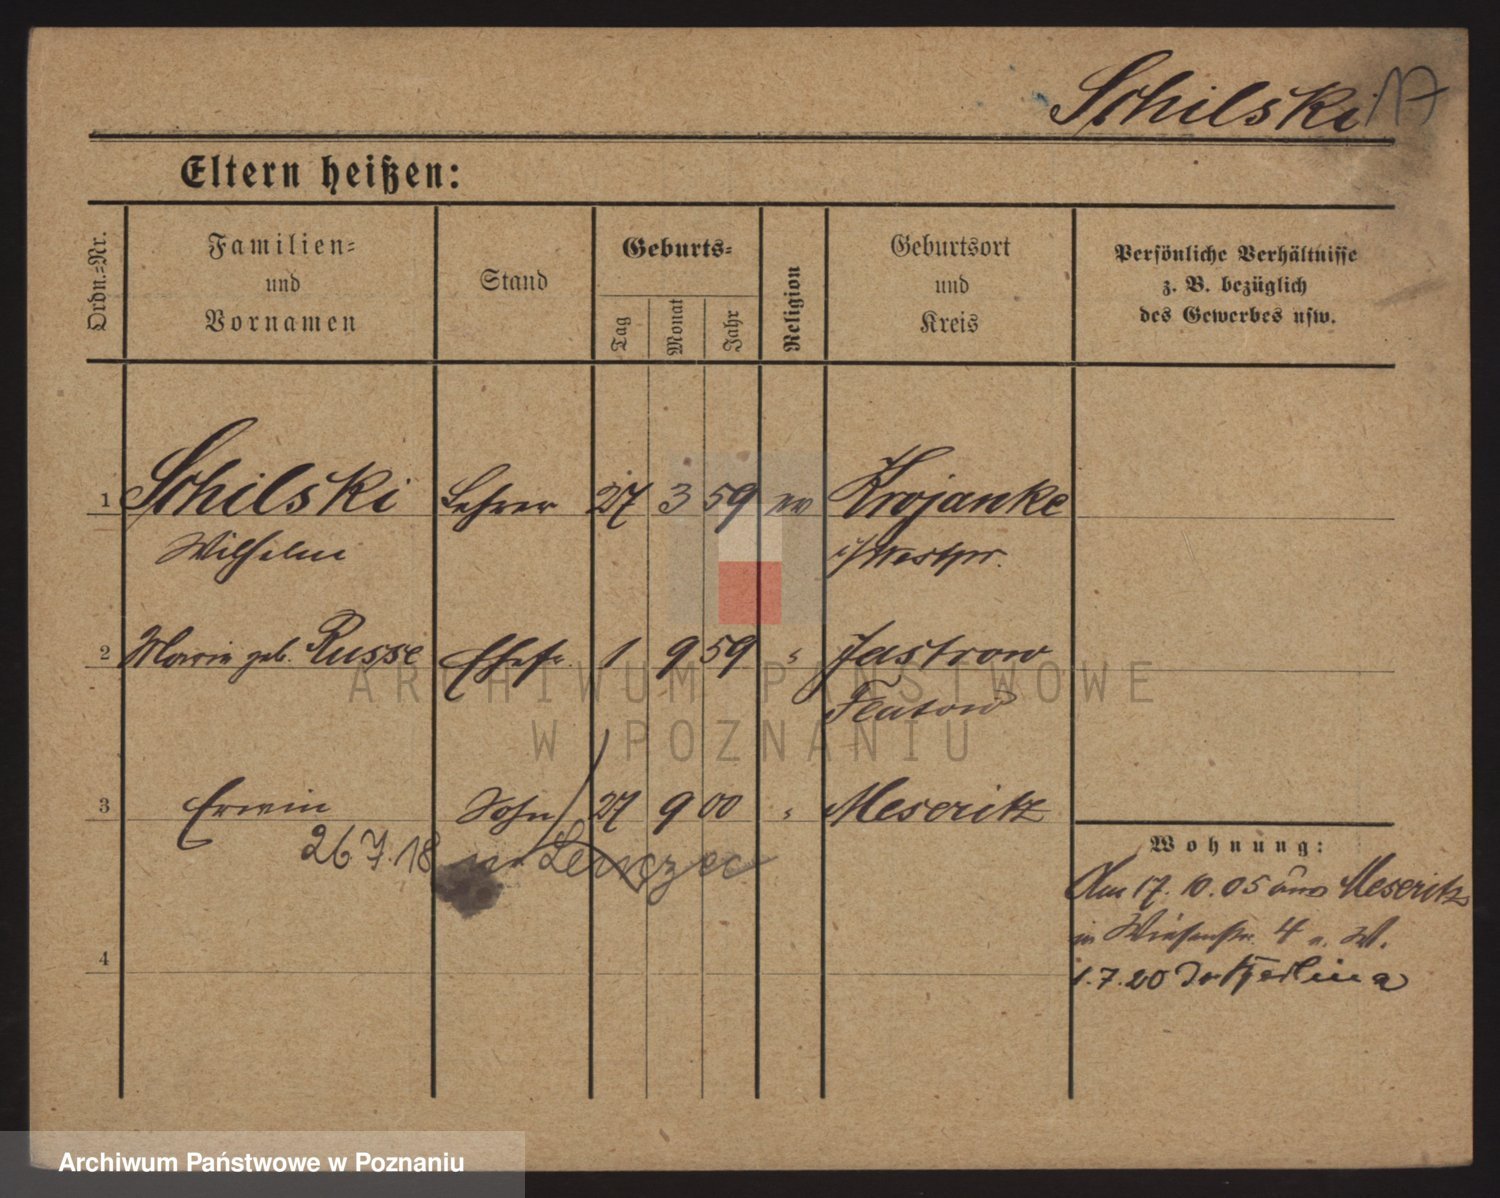 Schilski 17
Eltern heißen:
Ordn.=Nr.
Familien=
und
Vornamen
Stand
Geburts=
Tag
Monat
Jahr
Religion
Geburtsort
und
Kreis
Persönliche Verhältnisse
z. B. bezüglich
des Gewerbes usw.
1 Schilski Lehrer 27 3 59 ev Krojanke
Wilhelm i/Westpr.
2 Marie geb. Russe Ehefr. 1 9 59 " Jastrow
Flatow
3 Erwin Sohn 27 9 00 " Meseritz
26 7. 18
Wohnung:
Am 17. 10. 05 aus Meseritz
in Wiesenstr. 4 W.
4
1.7.20
ARCHIWUM PAŃSTWOWE
W POZNANIU
Archiwum Państwowe w Poznaniu